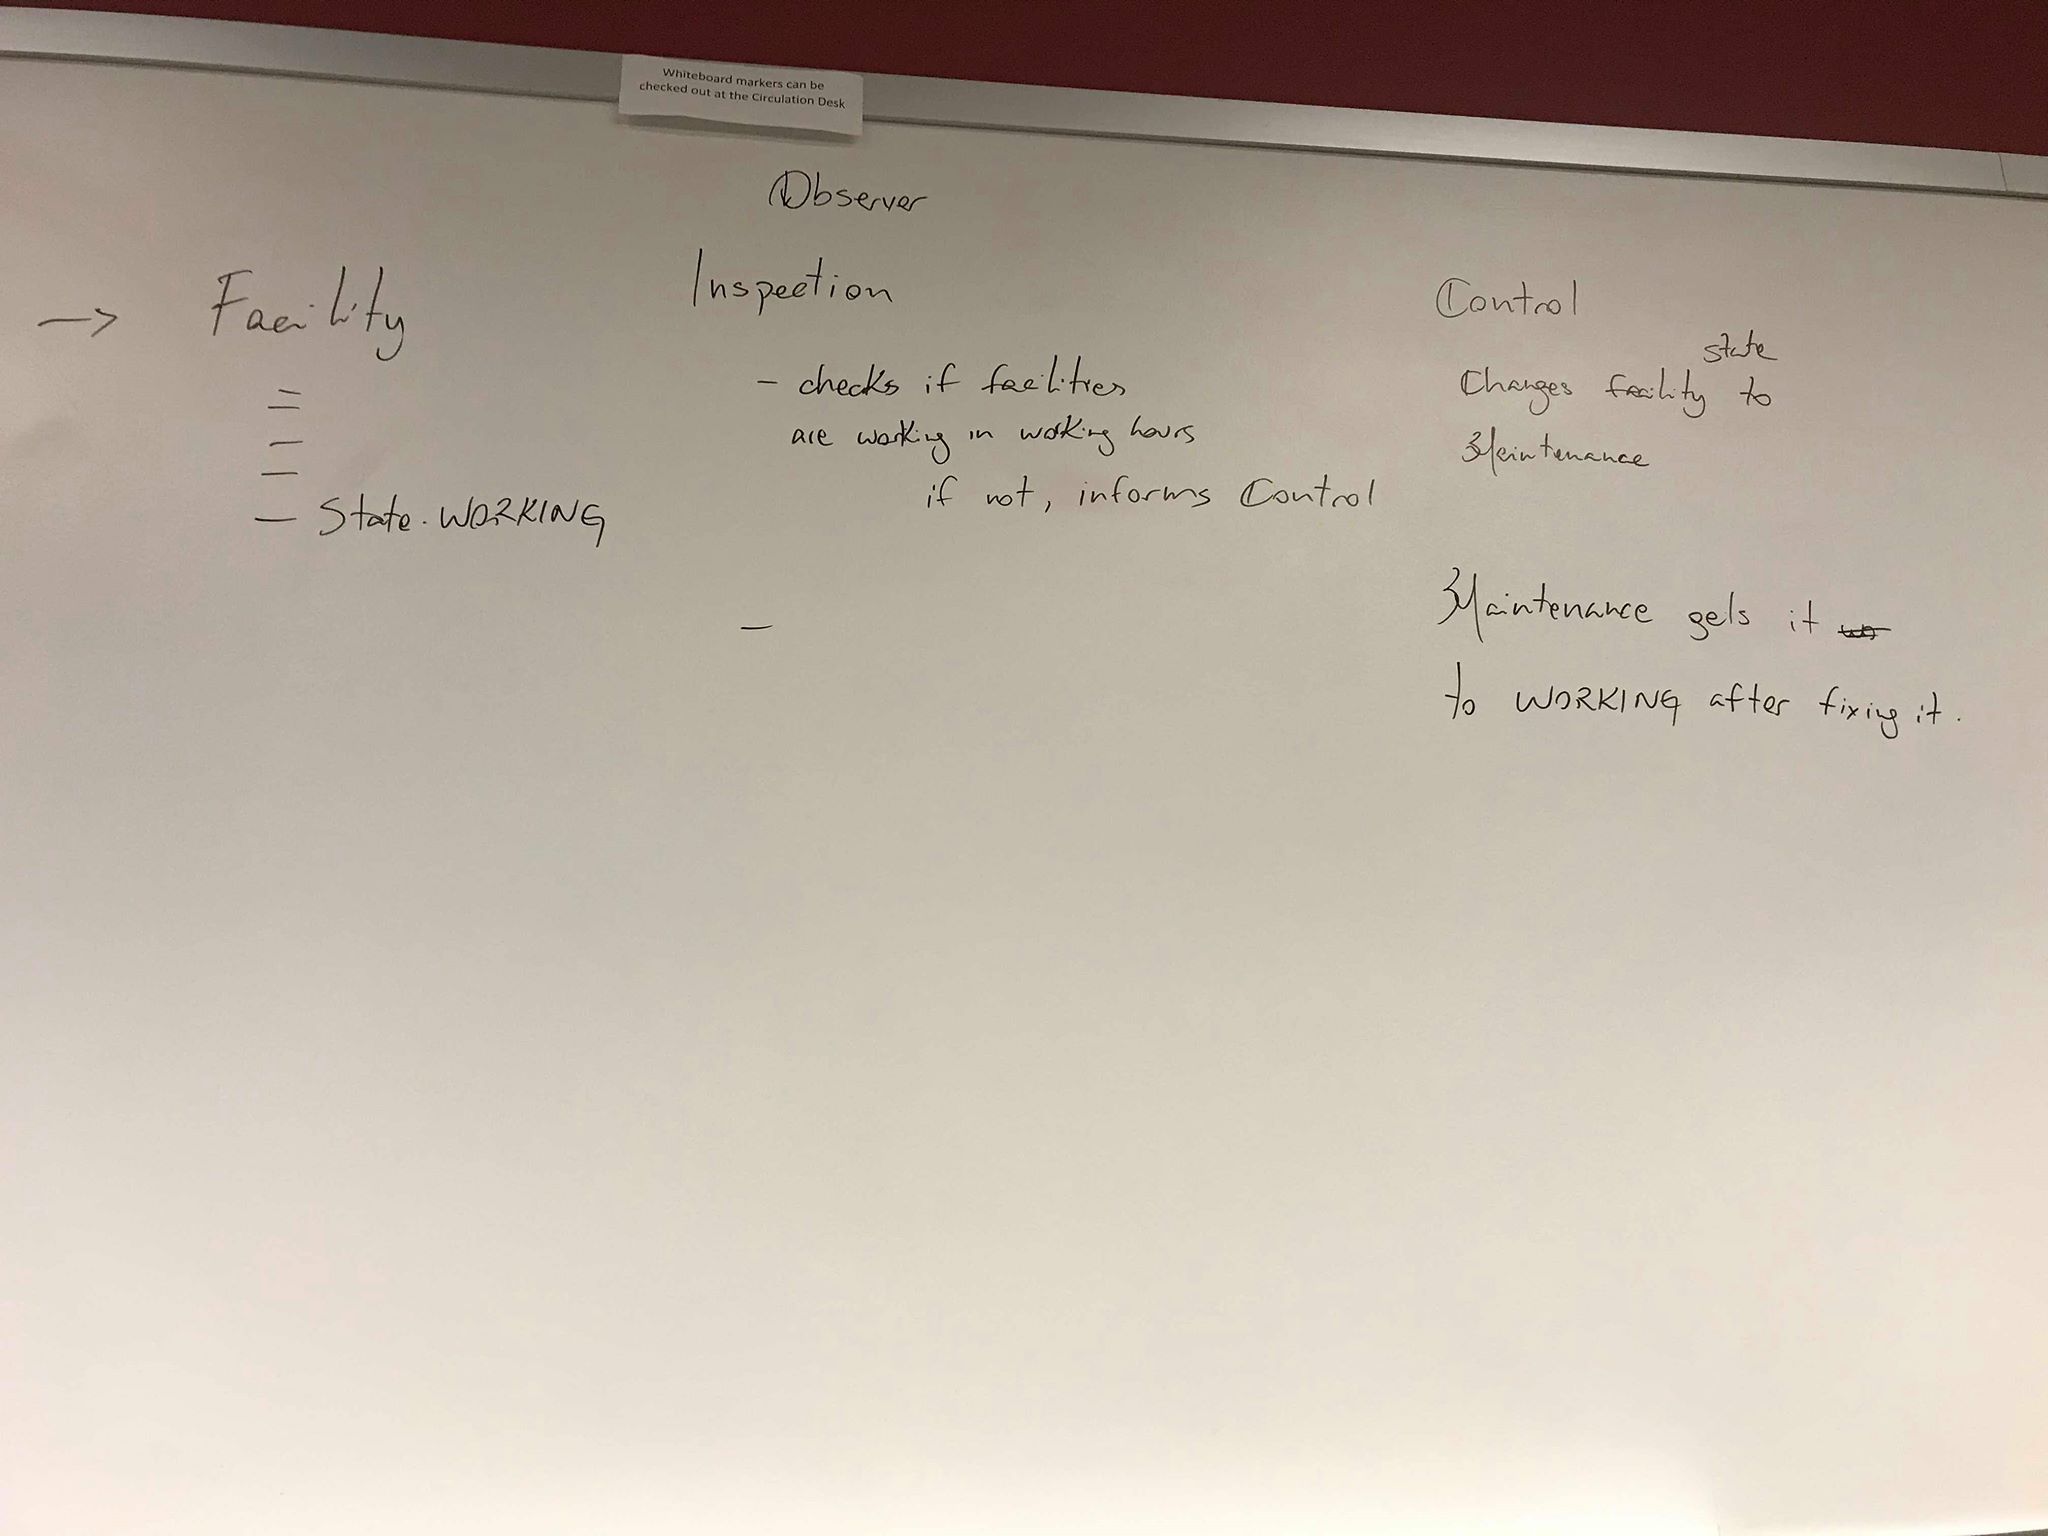 Whiteboard markers can be
checked out at the Circulation Desk
Observer
→ Facility
=
–
–
– State.WORKING
Inspection
– checks if facilities
are working in working hours
if not, informs Control
–
Control
state
Changes facility to
Maintenance
Maintenance gets it
to WORKING after fixing it.